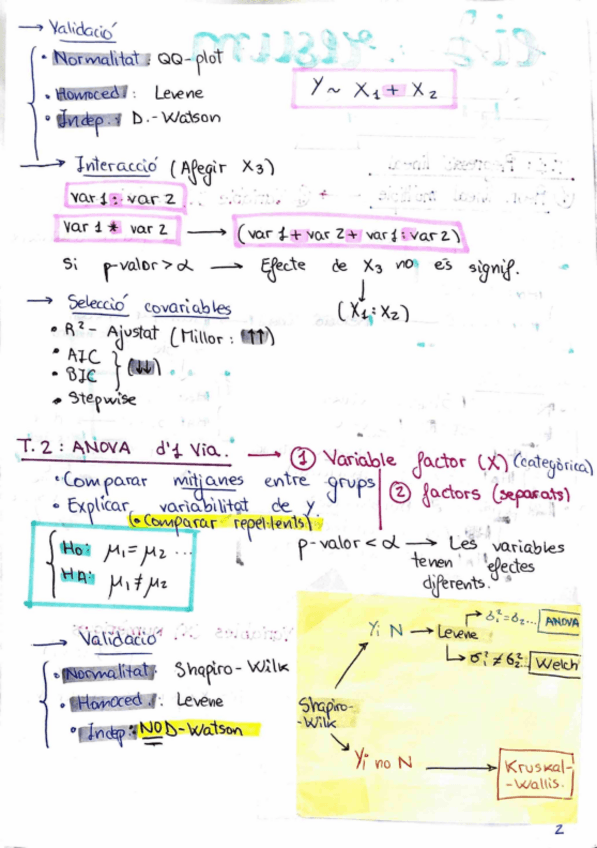 → Validació
• Normalitat : QQ-plot
Y ~ X1 + X2
• Homoced. : Levene
• Indep. : D.-Watson
→ Interacció (Afegir X3)
var 1 : var 2
var 1 * var 2 → (var 1 + var 2 + var 1 : var 2)
Si p-valor > α → Efecte de X3 no és signif.
↓
(X1 : X2)
→ Selecció covariables
• R² - Ajustat (Millor : ↑↑)
• AIC
• BIC } (↓↓)
• Stepwise
T.2 : ANOVA d'1 Via. → ① Variable factor (X) (categòrica)
② factors (separats)
• Comparar mitjanes entre grups
• Explicar variabilitat de y.
(• Comparar repel·lents)
H0: μ1 = μ2 ...
HA: μ1 ≠ μ2
p-valor < α → Les variables
tenen efectes
diferents.
→ Validació
• Normalitat. Shapiro-Wilk
• Homoced. : Levene
• Indep: NO D-Watson
Shapiro-
-Wilk
Yi N → Levene
→ σ1² = σ2² ... ANOVA
→ σ1² ≠ σ2² ... Welch
Yi no N → Kruskal-
-Wallis.
2